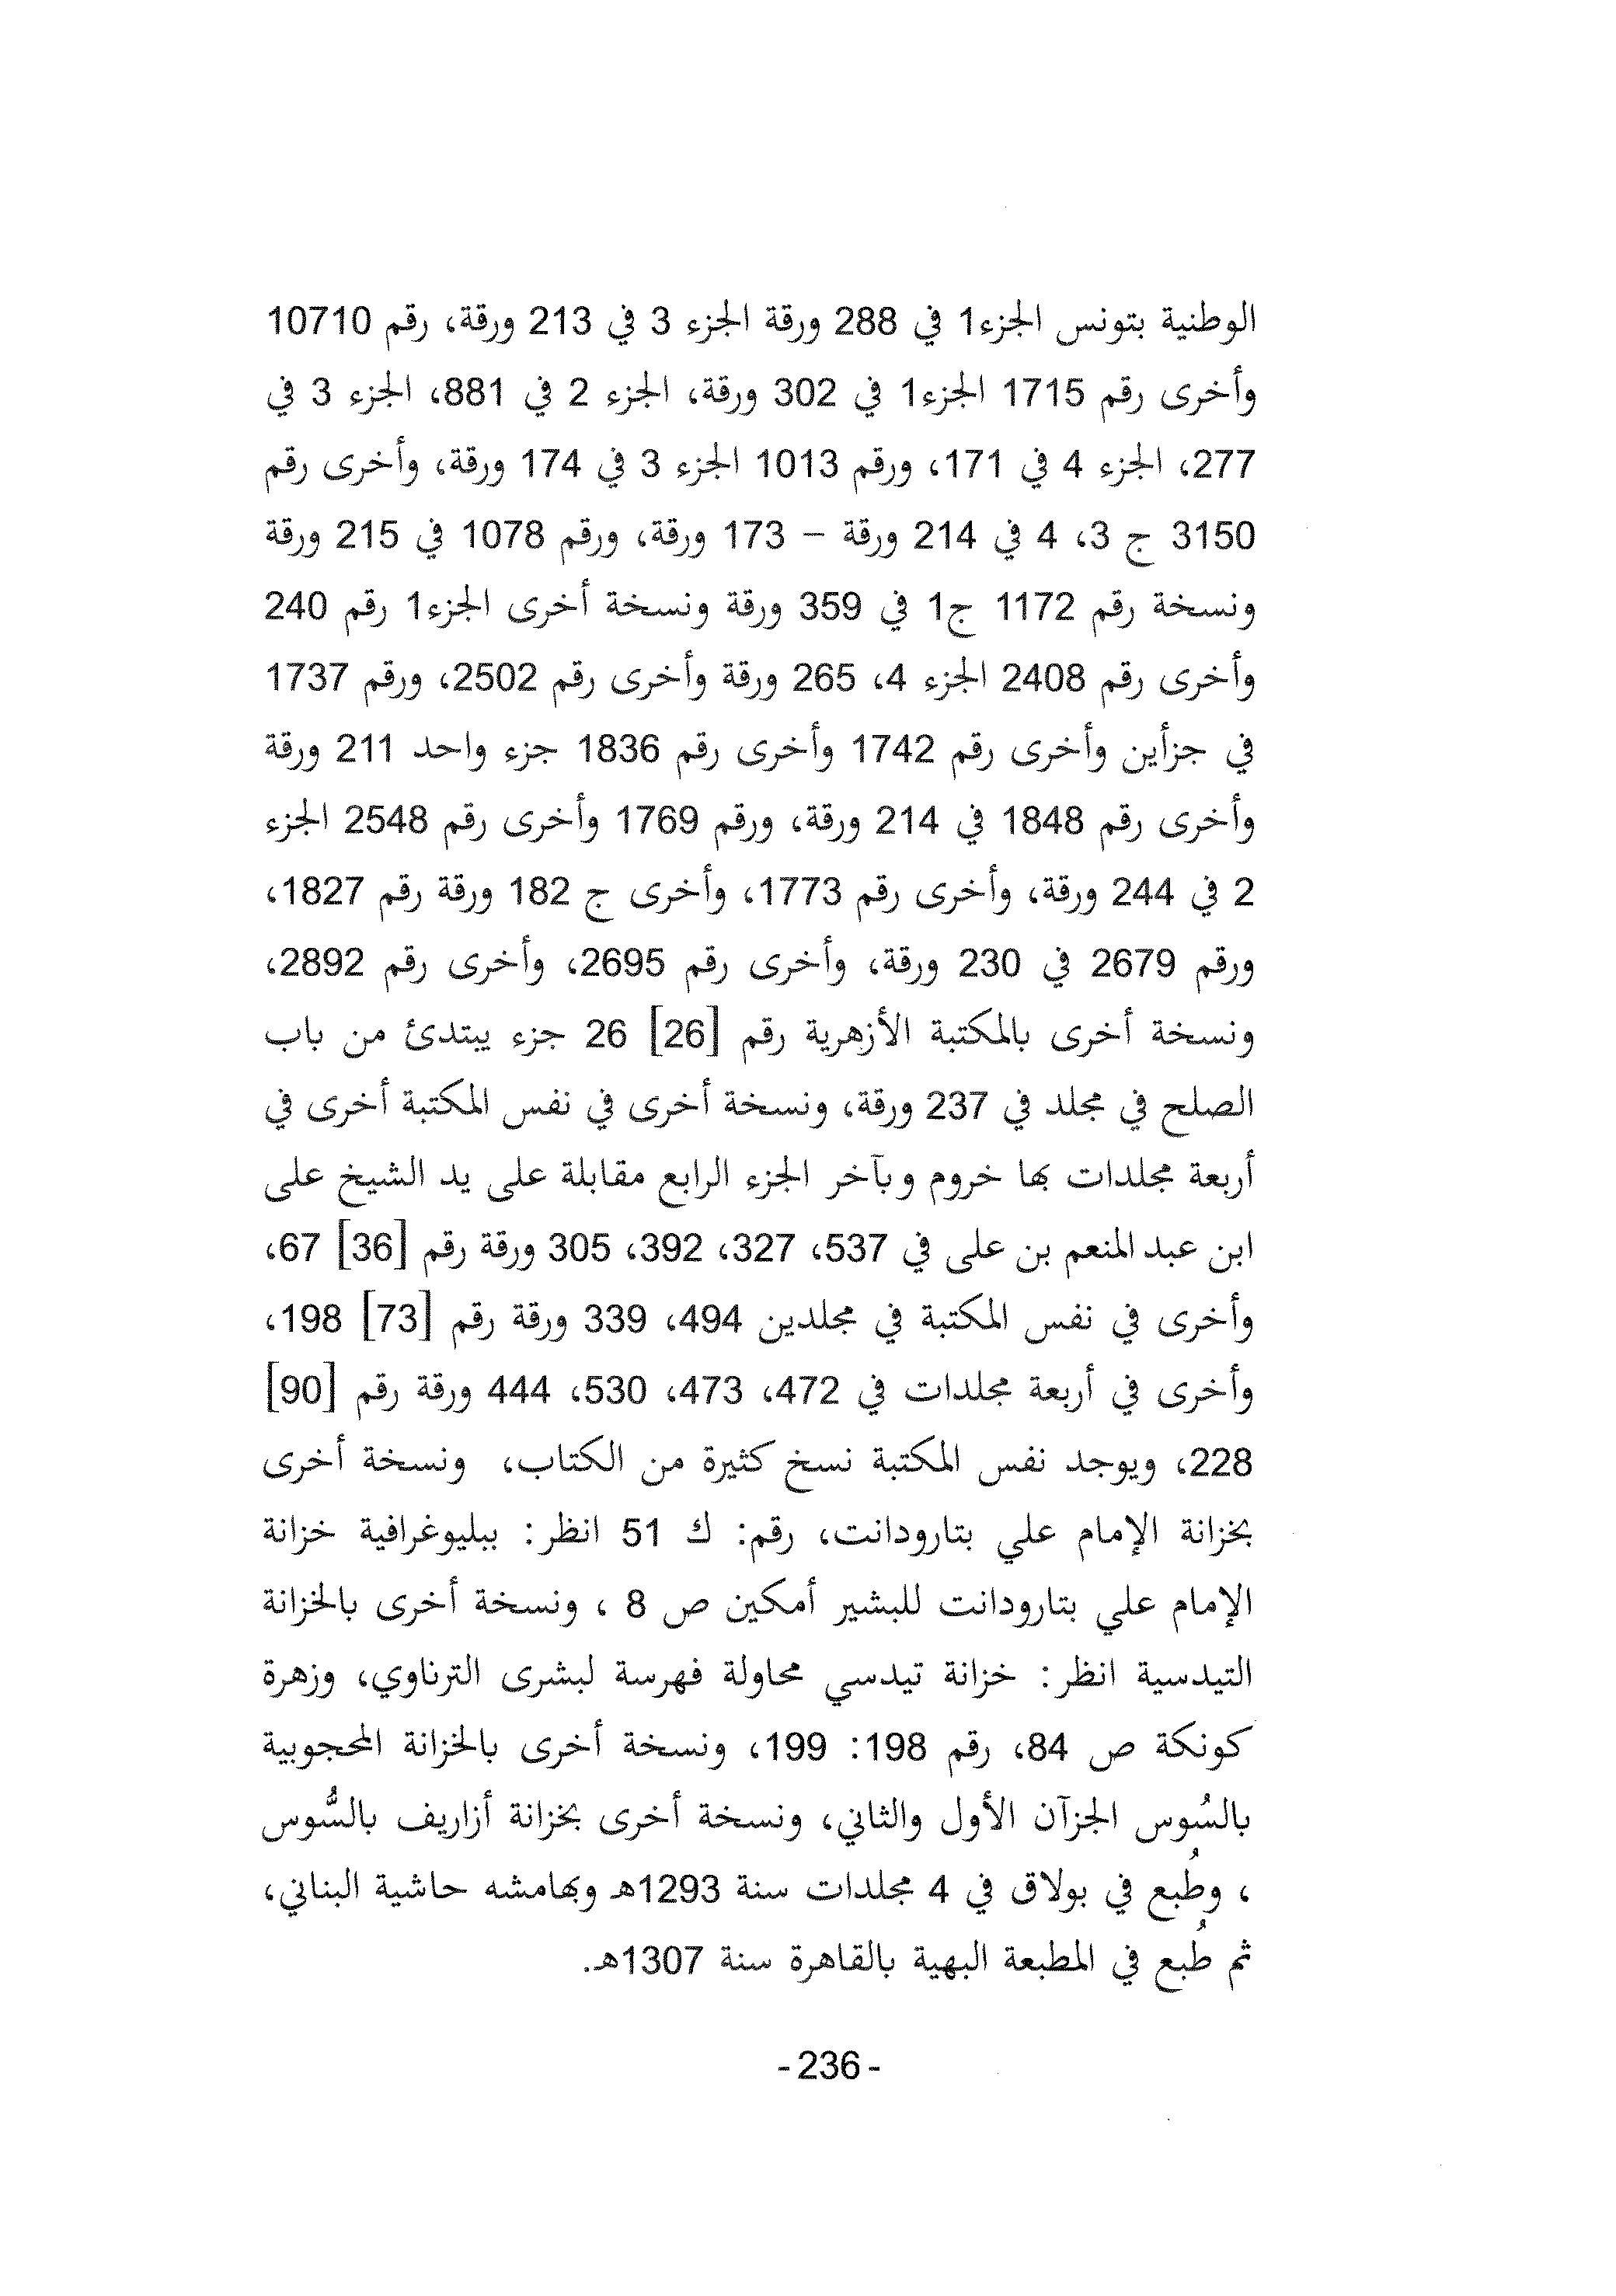 الوطنية بتونس الجزء1 في 288 ورقة الجزء 3 في 213 ورقة، رقم 10710
وأخرى رقم 1715 الجزء1 في 302 ورقة، الجزء 2 في 881، الجزء 3 في
277، الجزء 4 في 171، ورقم 1013 الجزء 3 في 174 ورقة، وأخرى رقم
3150 ج 3، 4 في 214 ورقة – 173 ورقة، ورقم 1078 في 215 ورقة
ونسخة رقم 1172 ج1 في 359 ورقة ونسخة أخرى الجزء1 رقم 240
وأخرى رقم 2408 الجزء 4، 265 ورقة وأخرى رقم 2502، ورقم 1737
في جزأين وأخرى رقم 1742 وأخرى رقم 1836 جزء واحد 211 ورقة
وأخرى رقم 1848 في 214 ورقة، ورقم 1769 وأخرى رقم 2548 الجزء
2 في 244 ورقة، وأخرى رقم 1773، وأخرى ج 182 ورقة رقم 1827،
ورقم 2679 في 230 ورقة، وأخرى رقم 2695، وأخرى رقم 2892،
ونسخة أخرى بالمكتبة الأزهرية رقم [26] 26 جزء يبتدئ من باب
الصلح في مجلد في 237 ورقة، ونسخة أخرى في نفس المكتبة أخرى في
أربعة مجلدات بها خروم وبآخر الجزء الرابع مقابلة على يد الشيخ على
ابن عبد المنعم بن على في 537، 327، 392، 305 ورقة رقم [36] 67،
وأخرى في نفس المكتبة في مجلدين 494، 339 ورقة رقم [73] 198،
وأخرى في أربعة مجلدات في 472، 473، 530، 444 ورقة رقم [90]
228، ويوجد نفس المكتبة نسخ كثيرة من الكتاب، ونسخة أخرى
بخزانة الإمام علي بتارودانت، رقم: ك 51 انظر: ببليوغرافية خزانة
الإمام علي بتارودانت للبشير أمكين ص 8 ، ونسخة أخرى بالخزانة
التيدسية انظر: خزانة تيدسي محاولة فهرسة لبشرى الترناوي، وزهرة
كونكة ص 84، رقم 198: 199، ونسخة أخرى بالخزانة المحجوبية
بالسُوس الجزآن الأول والثاني، ونسخة أخرى بخزانة أزاريف بالسُّوس
، وطُبع في بولاق في 4 مجلدات سنة 1293هـ وبهامشه حاشية البناني،
ثم طُبع في المطبعة البهية بالقاهرة سنة 1307هـ.
- 236 -